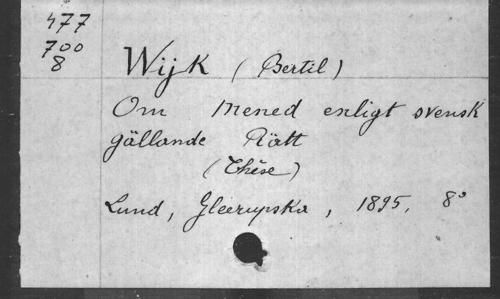 477
700
8
Wijk (Bertil)
Om Mened enligt svensk
gällande Rätt
(Thèse)
Lund, Gleerupska, 1895, 8°